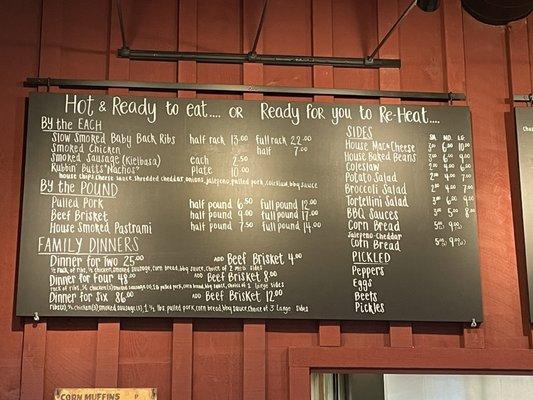 Hot & Ready to eat.... or Ready for you to Re-Heat....
By the EACH
Slow Smoked Baby Back Ribs half rack 13.00 full rack 22.00
Smoked Chicken half 7.00
Smoked Sausage (Kielbasa) each 2.50
Rubbin' Butts "Nachos" plate 10.00
house chips, cheese sauce, shredded cheddar, onions, jalapeno, pulled pork, coleslaw, bbq sauce
By the POUND
Pulled Pork half pound 6.50 full pound 12.00
Beef Brisket half pound 9.00 full pound 17.00
House Smoked Pastrami half pound 7.50 full pound 14.00
FAMILY DINNERS
Dinner for Two 25.00 ADD Beef Brisket 4.00
Sausage, corn bread, bbq sauce, choice of 2 med sides
Dinner for Four 48.00 ADD Beef Brisket 8.00
pulled pork, corn bread, bbq sauce, choice of 2 large sides
Dinner for Six 86.00 ADD Beef Brisket 12.00
pulled pork, corn bread, bbq sauce, choice of 3 large sides
SIDES SM. MD. LG.
House Mac & Cheese
House Baked Beans
Coleslaw
Potato Salad
Broccoli Salad
Tortellini Salad
BBQ Sauces
Corn Bread
Jalapeno-Cheddar
Corn Bread
PICKLED
Peppers
Eggs
Beets
Pickles
CORN MUFFINS